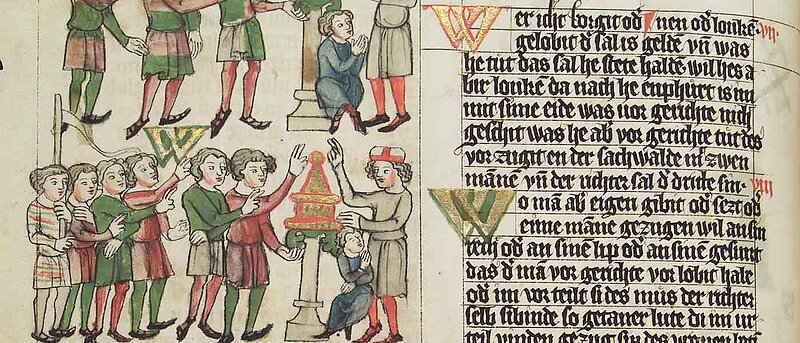 W
Wer icht borgit od' od' loukē vii
gelobit d' sal is geldē vn̄ was
he tut das sal he stete haldē wil hes a
bir loukē da nach he enphuret is im
mit sime eide was uor gerichte nich
geschit was he ab' vor gerichte tut des
vor zugit en der sachwalde uf zwen
māne vn̄ der richter sal d' dritte sin· viii
Wo mā ab eigen gibit od' sezt od'
eime māne gezugen wil an sin
rech od' an sime lip od' an sime gesunt
das d' mā vor gerichte vor lobit habe
od' im vor teilt si des mus der richter
selb sibinde so getaner lute di im ur
teil vinden gezug sin des